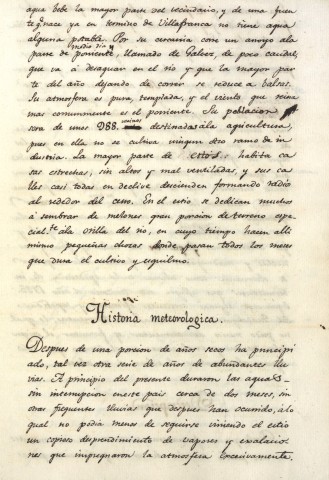 que bebe la mayor parte del vecindario, y de una fuen
te q.e nace ya en termino de Villafranca no tiene agua
alguna potable. Por su cercania corre un arroyo ála
medio dia
parte de poniente llamado de Galvez, de poco caudal,
que vá á desaguar en el rio y que la mayor par
te del año dejando de correr se reduce a balsas.
Su atmosfera es pura, templada, y el viento que reina
mas comunmente es el poniente. Su poblacion
vecinos
sera de unos 988. destinados ála agricultura,
pues en ella no se cultiva ningun otro ramo de in
dustria. La mayor parte de estos habita ca
sas estrechas, sin altos y mal ventiladas, y sus ca
lles casi todas en declive descienden formando radio
al rededor del cerro. En el estio se dedican muchos
á sembrar de melones gran porcion de terreno espe
cial.te ála orilla del rio, en cuyo tiempo hacen alli
mismo pequeñas chozas donde pasan todos los meses
que dura el cultivo y esquilmo.
Historia meteorologica.
Despues de una porcion de años secos ha principi
ado, tal vez otra serie de años de abundantes llu
vias. A principio del presente duraron las aguas
sin interrupcion en este pais cerca de dos meses, sin
otras frequentes lluvias que despues han ocurrido, á lo
qual no podia menos de seguirse viniendo el estio
un copioso desprendimiento de vapores y exalacio
nes que impregnaron la atmosfera excesivamente.